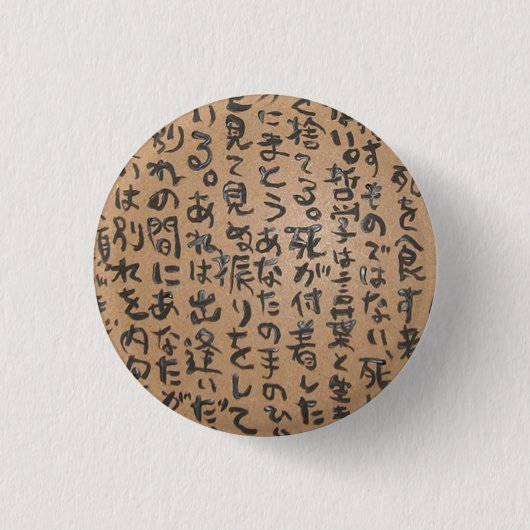 死を食す者
すものではない、死
ない。哲学は言葉と生
捨てる。死が付着した
にまとうあなたの手のひ
見て見ぬ振りをして
いる。あれは出逢いだ
別れの間にあなたが
は別れを内包